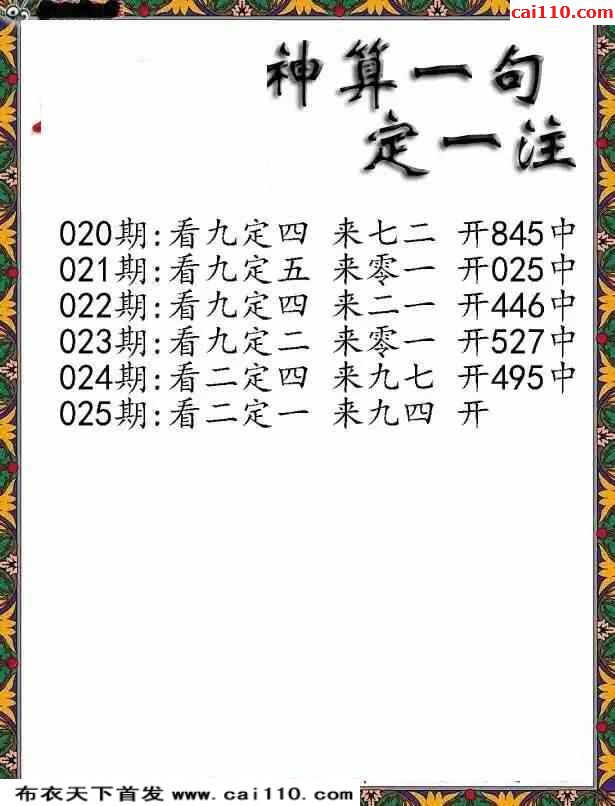 cai110.com
神算一句
定一注
020期:看九定四 来七二 开845中
021期:看九定五 来零一 开025中
022期:看九定四 来二一 开446中
023期:看九定二 来零一 开527中
024期:看二定四 来九七 开495中
025期:看二定一 来九四 开
布衣天下首发 www.cai110.com